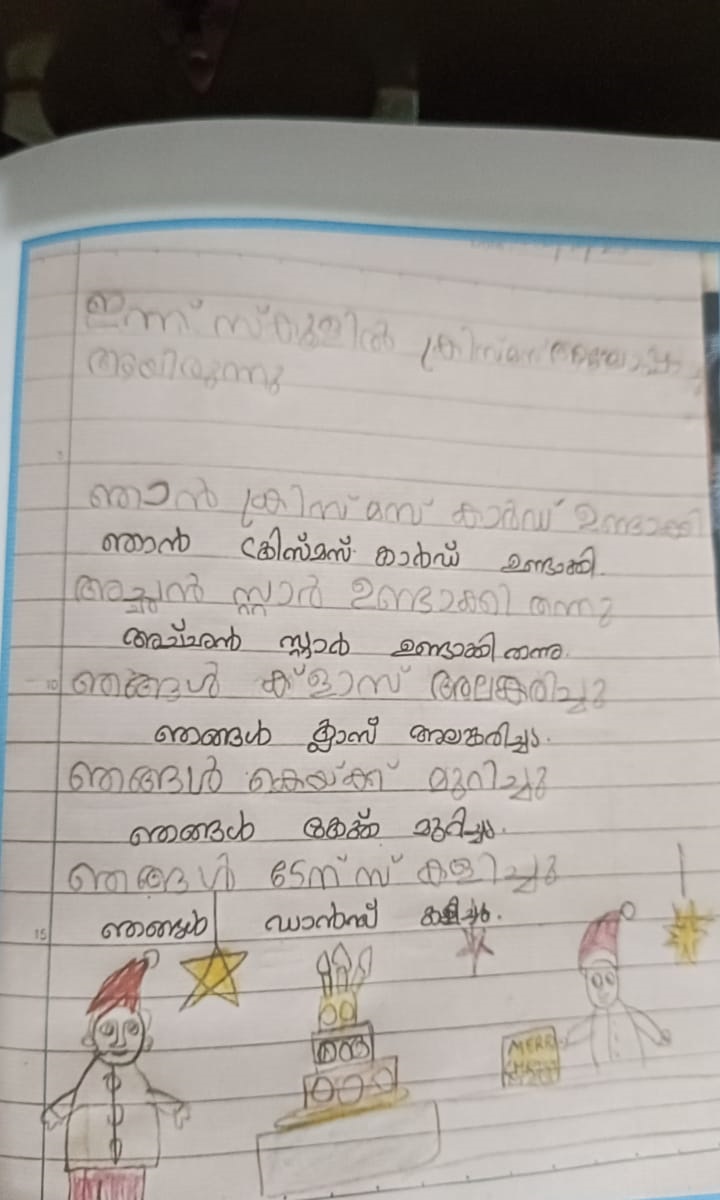 ഇന്ന് സ്കൂളിൽ ക്രിസ്മസ് ആഘോഷം
ആയിരുന്നു
ഞാൻ ക്രിസ്മസ് കാർഡ് ഉണ്ടാക്കി
ഞാൻ ക്രിസ്മസ് കാർഡ് ഉണ്ടാക്കി.
അച്ചൻ സ്റ്റാർ ഉണ്ടാക്കി തന്നു
അച്ഛൻ സ്റ്റാർ ഉണ്ടാക്കി തന്നു.
10 ഞങ്ങൾ ക്ളാസ് അലങ്കരിച്ചു
ഞങ്ങൾ ക്ലാസ് അലങ്കരിച്ചു.
ഞങ്ങൾ കെയ്ക്ക് മുറിച്ചു
ഞങ്ങൾ കേക്ക് മുറിച്ചു.
ഞങ്ങൾ ടേന്സ് കളിച്ചു
15 ഞങ്ങൾ ഡാൻസ് കളിച്ചു.
MERRY